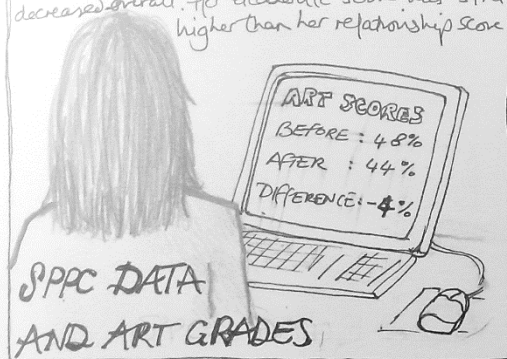 decreased overall.
higher than her relationship score
ART SCORES
BEFORE : 48%
AFTER : 44%
DIFFERENCE: -4%
SPPC DATA
AND ART GRADES